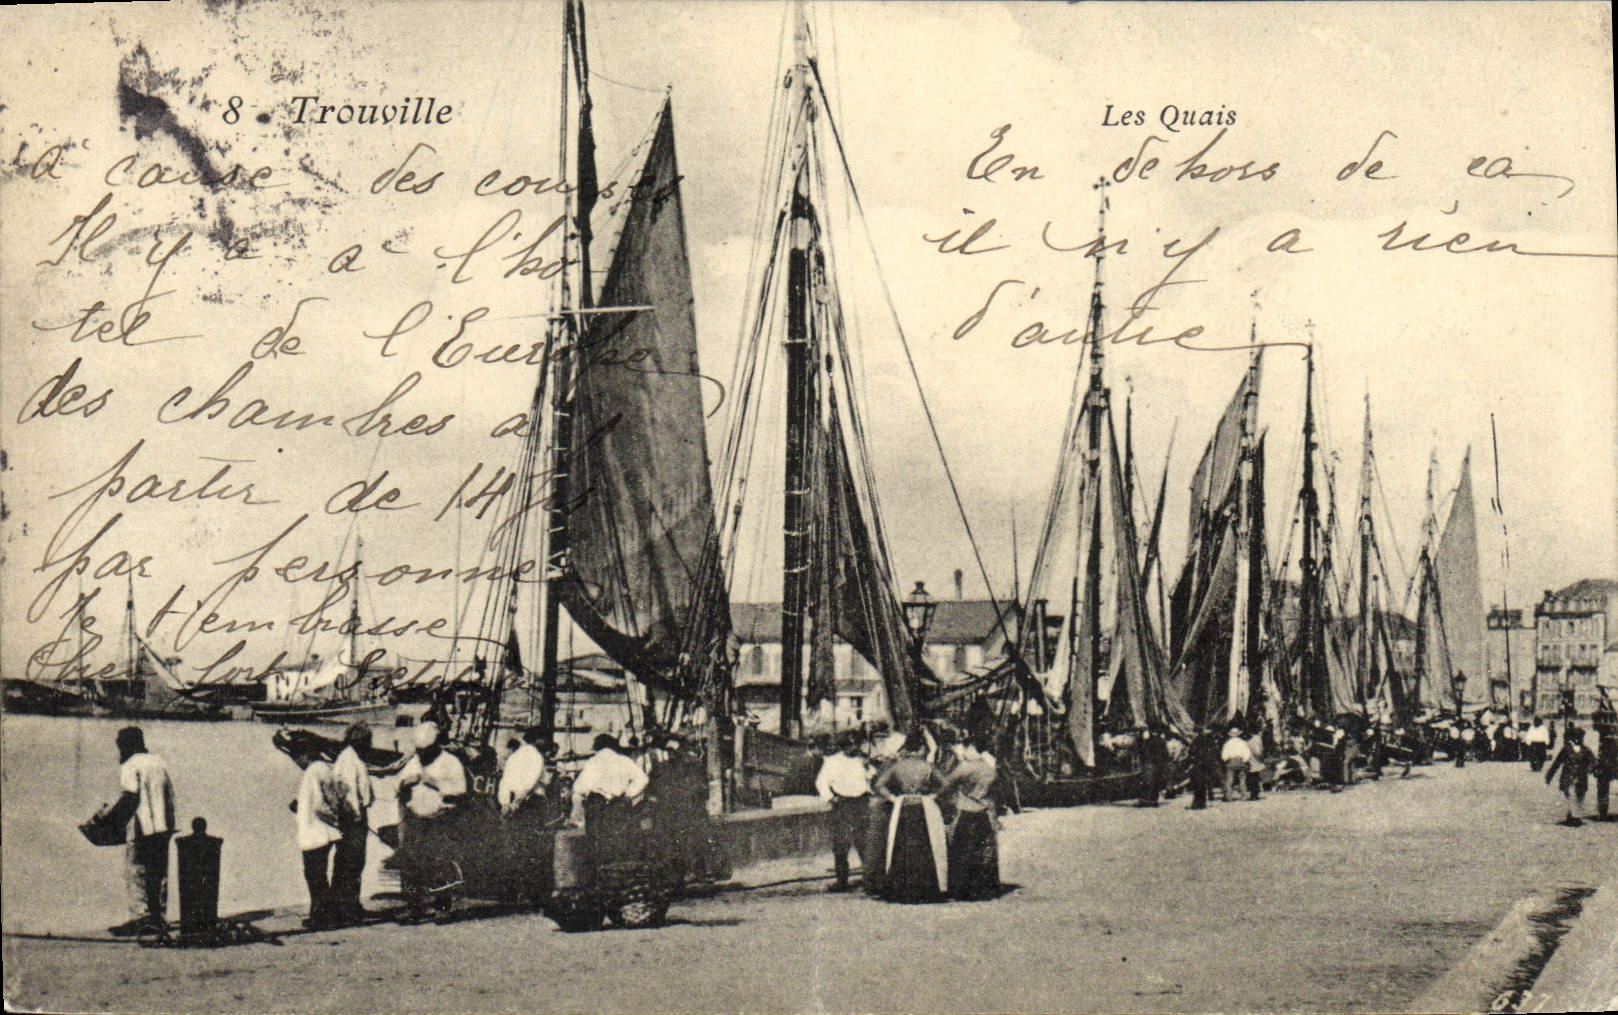 8 - Trouville
Les Quais
à cause des courses
Il y a à l'ho
tel de l'Europe
des chambres a
partir de 14 frs
par personne
Je t'embrasse
fort
En dehors de ça
il n'y a rien
d'autre
637